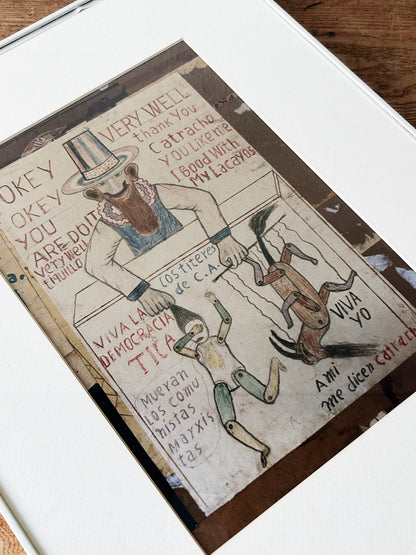 OKEY
OKEY
YOU
ARE DOIT
Very Well
TIQUILLO
VERY WELL
Thank You
Catracho
YOU LIKE me
I GOOD WITH
My LACAYOS
Los TITERES
de C.A.
VIVA LA
DEMOCRACIA
TICA
Mueran
Los comu
nistas
Marxis
tas
VIVA
YO
A mi
me dicen Catrach